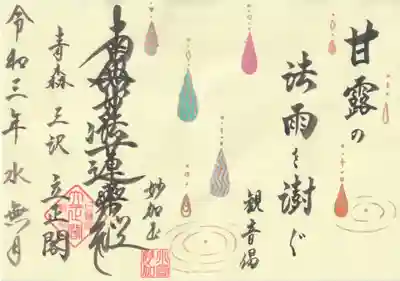 甘露の
法雨を澍ぐ
観音偈
妙加玉
南無妙法蓮華経
青森 三沢 立正閣
令和三年水無月